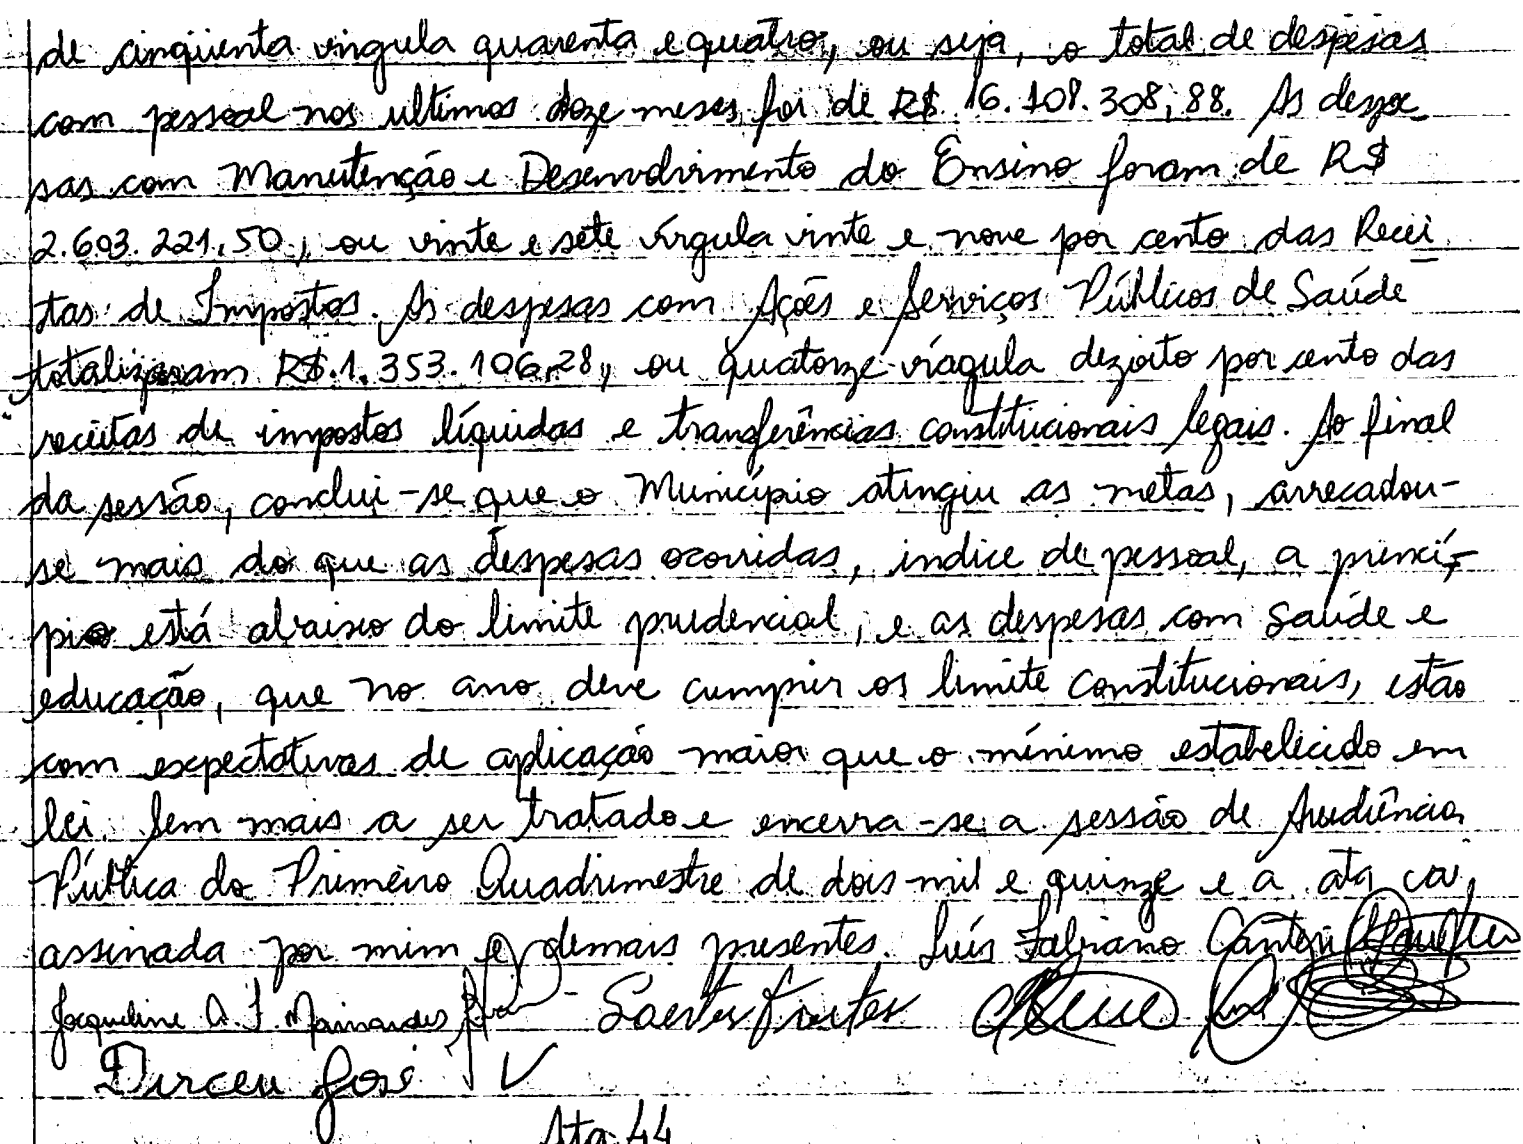 de cinqüenta vingula quarenta e quatro, ou seja, o total de despesas
com pessoal nos ultimos doze meses foi de R$ 16.108.308,88. As despe
sas com Manutenção e Desenvolvimento do Ensino foram de R$
2.603.221,50, ou vinte e sete vírgula vinte e nove por cento das Recei
tas de Impostos. As despesas com Ações e Serviços Públicos de Saúde
totalizaram R$.1.353.106,28, ou quatorze vírgula dezoito por cento das
receitas de impostos líquidas e transferências constitucionais legais. Ao final
da sessão, conclui-se que o Município atingiu as metas, arrecadou-
se mais do que as despesas ocorridas, indice de pessoal, a princí-
pio está abaixo do limite prudencial, e as despesas com Saúde e
educação, que no ano deve cumprir os limite constitucionais, estão
com expectativas de aplicação maior que o mínimo estabelecido em
lei. Sem mais a ser tratado e encerra-se a sessão de Audiência
Pública do Primeiro Quadrimestre de dois mil e quinze e a ata vai
assinada por mim e demais presentes. Luís Fabiano Canteri
Jacqueline A. F. Mainardes
Dirceu José
Ata 44